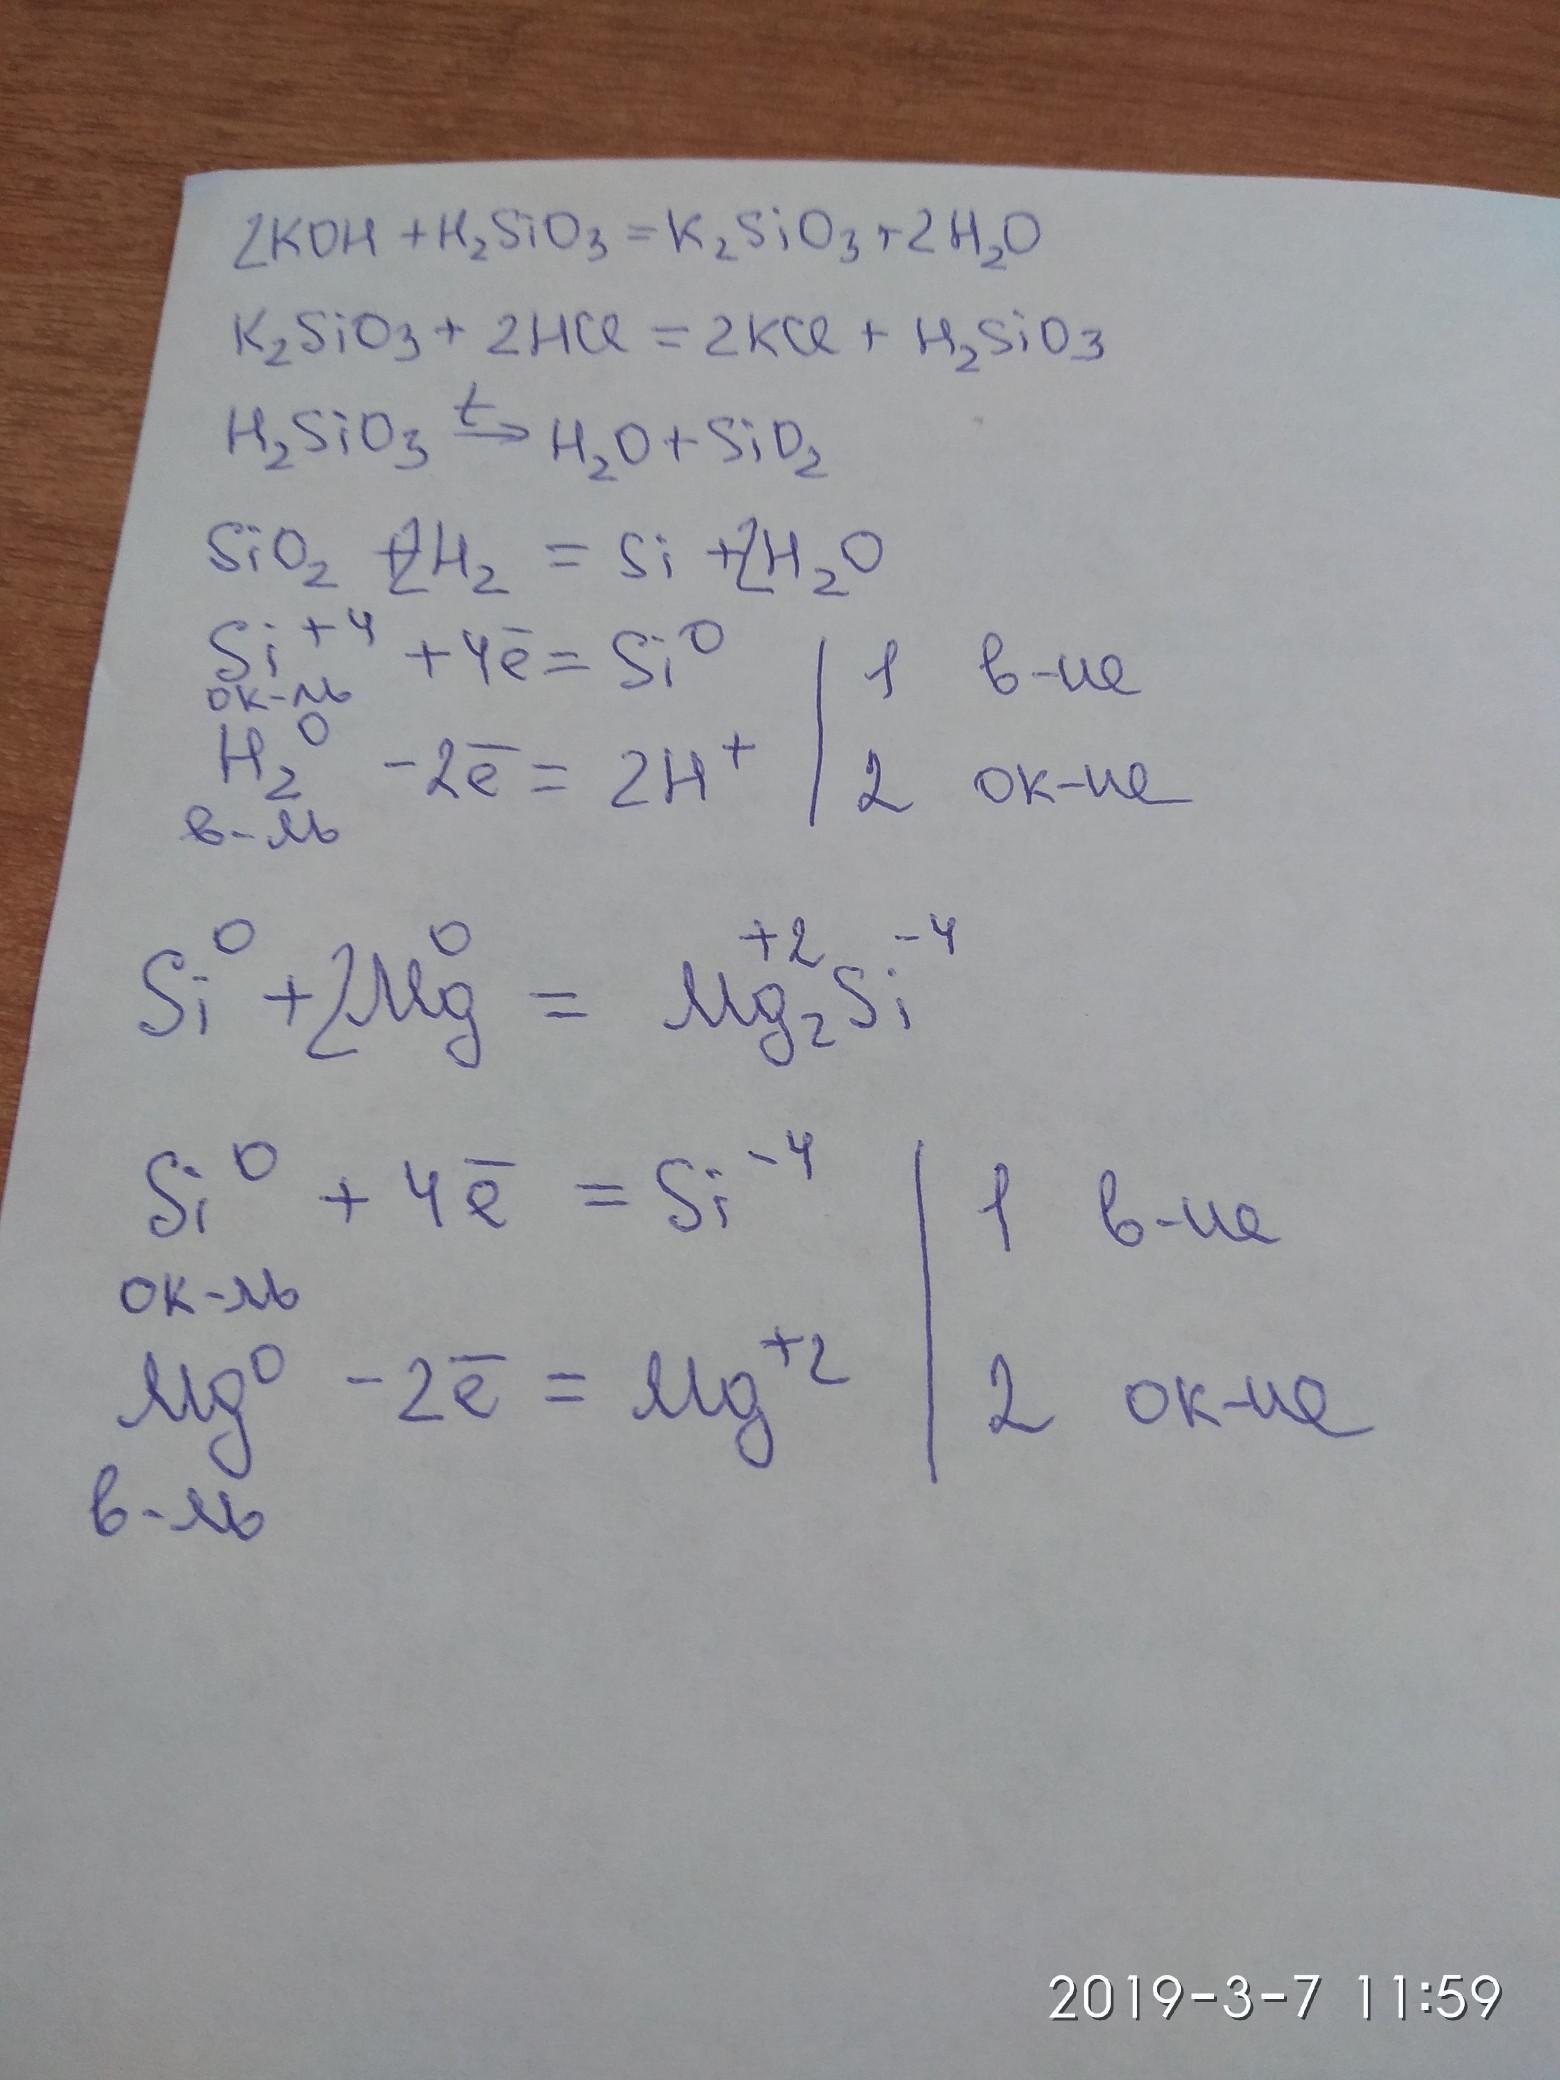 2KOH + H₂SiO₃ = K₂SiO₃ + 2H₂O
K₂SiO₃ + 2HCl = 2KCl + H₂SiO₃
H₂SiO₃ t→ H₂O + SiO₂
SiO₂ + 2H₂ = Si + 2H₂O
Si⁺⁴ + 4e̅ = Si⁰ | 1 в-ие
ок-ль
H₂⁰ - 2e̅ = 2H⁺ | 2 ок-ие
в-ль
Si⁰ + 2Mg⁰ = Mg₂⁺²Si⁻⁴
Si⁰ + 4e̅ = Si⁻⁴ | 1 в-ие
ок-ль
Mg⁰ - 2e̅ = Mg⁺² | 2 ок-ие
в-ль
2019-3-7 11:59